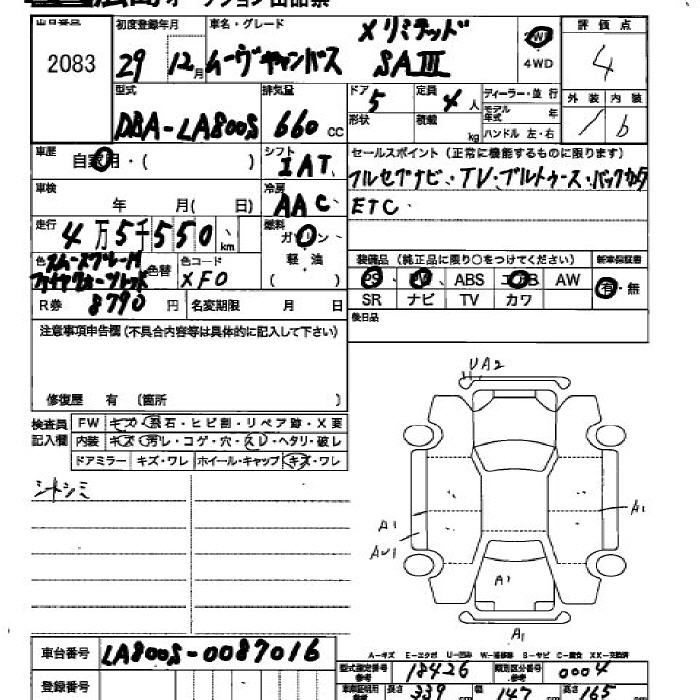 オークション出品票
出品番号 初度登録年月 車名・グレード 評価点
2083 29 12月 ムーヴキャンバス Xリミテッド SAIII W 4WD 4
型式 排気量 ドア 定員 ディーラー・並行 外装 内装
DBA-LA800S 660cc 5 4人 モデル年式 年
形状 積載 kg ハンドル 左・右 b
車歴 シフト セールスポイント(正常に機能するものに限ります)
自家用・( ) IAT フルセグナビ・TV・ブルトゥース・バックカメラ
車検 冷房
年 月( 日) AAC ETC
走行 燃料
4万5千550km ガソリン
色 色替 色コード 軽油 装備品(純正品に限り○をつけてください) 新車保証書
XF0 ( ) PS・PW・ABS エアB AW 有・無
R券 8790円 名変期限 月 日 SR ナビ TV カワ
注意事項申告欄(不具合内容等は具体的に記入して下さい) 後日品
修復歴 有 (箇所 )
検査員記入欄 FW キズ・飛石・ヒビ割・リペア跡・X要
内装 キズ・汚レ・コゲ・穴・スレ・ヘタリ・破レ
ドアミラー キズ・ワレ ホイール・キャップ キズ・ワレ
シートシミ
UA2
A1
A1
AU1
A1
A1
A-キズ E-エクボ U-凹み W-補修跡 S-サビ C-腐食 XX-交換済
車台番号 LA800S-0087016 型式指定番号 参考 18426 類別区分番号 参考 0004
登録番号 車庫証明用 参考 長さ 339cm 幅 147cm 高さ 165cm